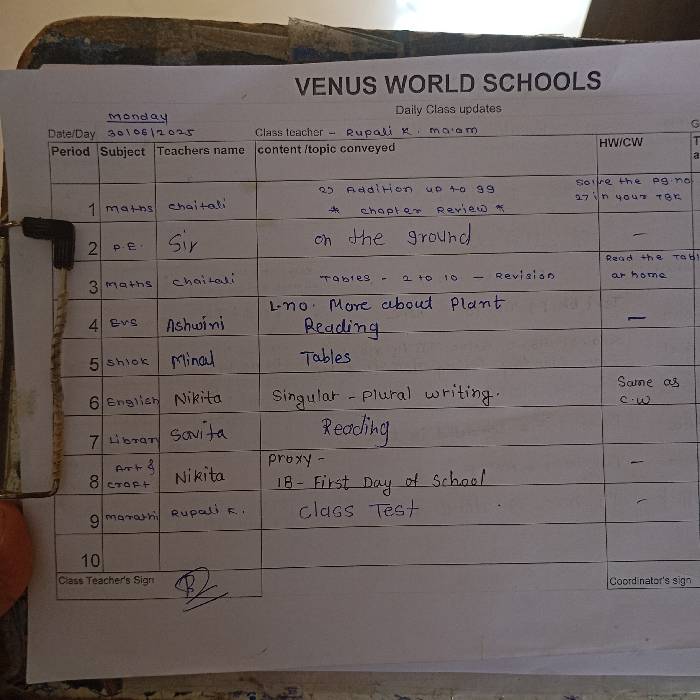 VENUS WORLD SCHOOLS
Daily Class updates
Monday
Date/Day 30/06/2025 Class teacher - Rupali K. ma'am G
Period Subject Teachers name content /topic conveyed HW/CW T
a
2) Addition up to 99 Solve the pg.no
1 maths chaitali * chapter Review * 27 in your TBK
2 P.E. Sir on the ground -
Read the Tabl
3 maths chaitali Tables - 2 to 10 - Revision at home
L.no. More about Plant
4 EVS Ashwini Reading -
5 Shlok Minal Tables
6 English Nikita Singular - plural writing. Same as
c.w
7 Library Savita Reading
Art & proxy -
8 craft Nikita 18 - First Day of School -
9 marathi Rupali K. Class Test -
10
Class Teacher's Sign Coordinator's sign